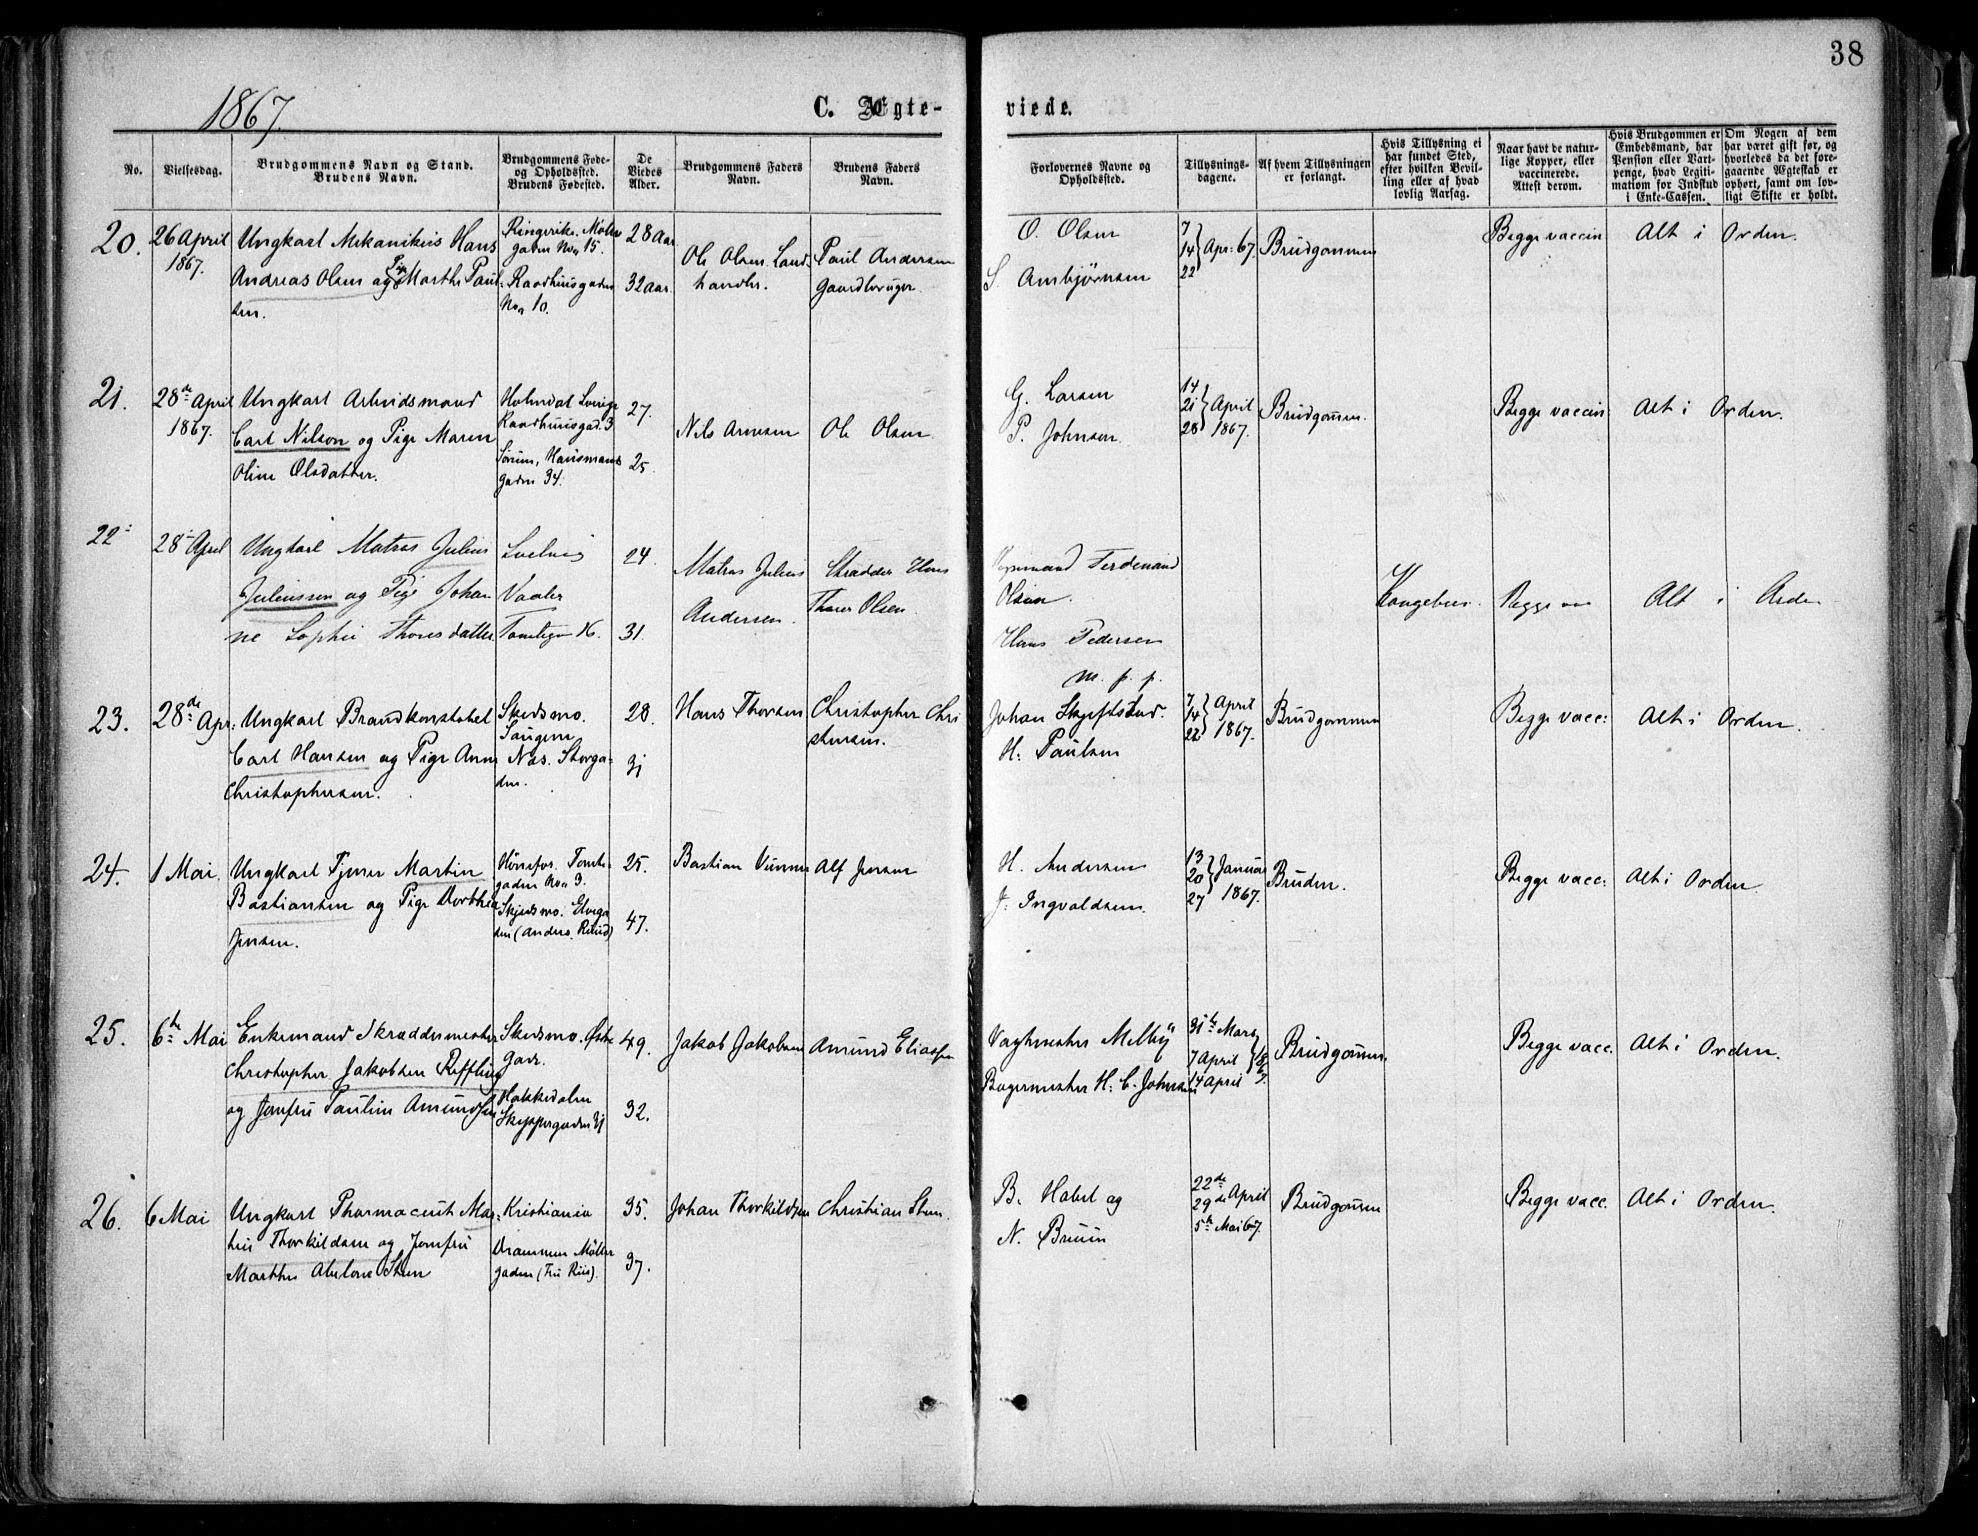 38
1867.
C. Ægte-
viede.
No.
Vielsesdag.
Brudgommens Navn og Stand.
Brudens Navn.
Brudgommens Føde-
og Opholdssted.
Brudens Fødested.
De
Viedes
Alder.
Brudgommens Faders
Navn.
Brudens Faders
Navn.
Forlovernes Navne og
Opholdssted.
Tillysnings-
dagene.
Af hvem Tillysningen
er forlangt.
Hvis Tillysning ei
har fundet Sted,
efter hvilken Bevil-
ling eller af hvad
lovlig Aarsag.
Naar havt de natur-
lige Kopper, eller
vaccinerede.
Attest derom.
Hvis Brudgommen er
Embedsmand, har
Pension eller Vart-
penge, hvad Legiti-
mation for Indskud
i Enke-Cassen.
Om Nogen af dem
har været gift før, og
hvorledes da det fore-
gaaende Ægteskab er
ophørt, samt om lov-
ligt Skifte er holdt.
20.
26 April
1867.
Ungkarl Mekanikus Hans
Andreas Olsen og Pige Marthe Paul-
sen.
Ringerike. Møller
gaden No 15.
Raadhuusgaden
No 10.
28 Aar
32 aar.
Ole Olsen. Land-
handler.
Paul Andersen
Gaardbruger.
O. Olsen
S. Ambjørnsen
7
14
22
Apr: 67.
Brudgommen
Begge vaccin
Alt i Orden.
21.
28de April
1867.
Ungkarl Arbeidsmand
Carl Nilson og Pige Maren
Oline Olsdatter.
Holmdal Sverige
Raadhuusgad. 3
Sørum, Hausmans
gaden 34.
27.
25.
Nils Arnesen
Ole Olsen.
G. Larsen
P. Johnsen.
14
21
28
April
1867.
Brudgommen.
Begge vaccin:
Alt i Orden.
22
28 April
Ungkarl Matros Julius
Juliussen og Pige Johan
ne Sophie Thoresdatter
Soelvig
Vaaler
Tomtegn 16.
24.
31.
Matros Julius
Andersen.
Skrædder Hans
Thorer Olsen.
Ferdinand
Olsen.
Hans Pedersen
m. p. p.
Kongebrev.
Begge va
Alt i Orde
23.
28de Apr:
Ungkarl Brandkonstabel
Carl Hansen og Pige Anne
Christophersen.
Skedsmo.
Saugene
Næs. Storga-
den.
28.
31
Hans Thorsen
Christopher Chri
stensen.
Johan Skjeftstad.
H: Paulsen
7
14
22
April
1867.
Brudgommen
Begge vacc:
Alt i Orden.
24.
1 Mai.
Ungkarl Tjener Martin
Bastiansen og Pige Dorthea
Jensen.
Hønefos. Tomte-
gaden No 9.
Skjedsmo. Elvega
den (Anders. Ruud)
25.
47.
Bastian
Alf Jensen
H. Andersen
J. Ingvaldsen.
13
20
27
Januar
1867.
Bruden.
Begge vacc:
Alt i Orden
25.
6te Mai
Enkemand Skræddermester
Christopher Jakobsen Refling
og Jomfru Pauline Amundsen
Skedsmo. Østre
Gade.
Hakkedalen
Skippergaden 31
49.
32.
Jakob Jakobsen
Amund Eliassen
Vagtmester Melby
Bagermester H. C. Johnsen
31te Mars
7 April
14 April
1867.
Brudgommen
Begge vacc.
Alt i Orden.
26.
6 Mai
Ungkarl Pharmaceut Mar-
tius Thorkildsen og Jomfru
Marthe Abelone Steen
Kristiania
Drammen Møller
gaden (Fru Riis).
35.
37.
Johan Thorkildsen
Christian Steen.
B. Habel og
N. Bruun
22de
29de April
5te Mai 67.
Brudgommen
Begge vacc.
Alt i Orden.